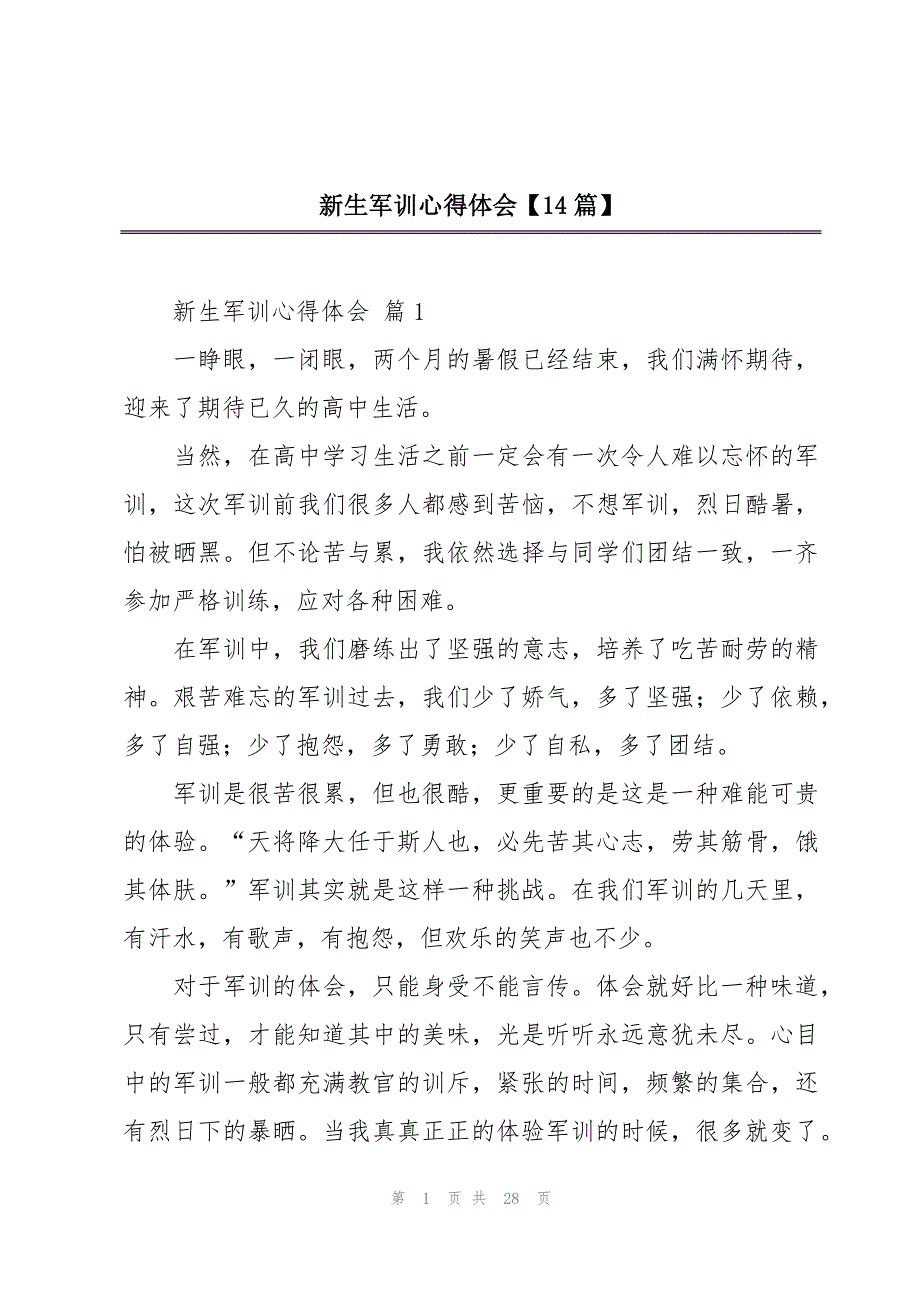 新生军训心得体会【14篇】
新生军训心得体会 篇1
一睁眼，一闭眼，两个月的暑假已经结束，我们满怀期待，
迎来了期待已久的高中生活。
当然，在高中学习生活之前一定会有一次令人难以忘怀的军
训，这次军训前我们很多人都感到苦恼，不想军训，烈日酷暑，
怕被晒黑。但不论苦与累，我依然选择与同学们团结一致，一齐
参加严格训练，应对各种困难。
在军训中，我们磨练出了坚强的意志，培养了吃苦耐劳的精
神。艰苦难忘的军训过去，我们少了娇气，多了坚强；少了依赖，
多了自强；少了抱怨，多了勇敢；少了自私，多了团结。
军训是很苦很累，但也很酷，更重要的是这是一种难能可贵
的体验。“天将降大任于斯人也，必先苦其心志，劳其筋骨，饿
其体肤。”军训其实就是这样一种挑战。在我们军训的几天里，
有汗水，有歌声，有抱怨，但欢乐的笑声也不少。
对于军训的体会，只能身受不能言传。体会就好比一种味道，
只有尝过，才能知道其中的美味，光是听听永远意犹未尽。心目
中的军训一般都充满教官的训斥，紧张的时间，频繁的集合，还
有烈日下的暴晒。当我真真正正的体验军训的时候，很多就变了。
第 1 页 共 28 页